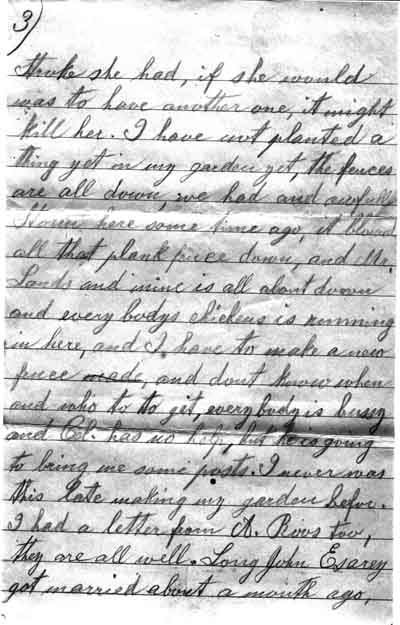 3)
stroke she had, if she would
was to have another one, it might
kill her. I have not planted a
thing yet in my garden yet, the fences
are all down, we had and awfull
storm here some time ago, it blowed
all that plank fence down, and Mr.
Lands and mine is all about down
and every bodys chickens is running
in here, and I have to make a new
fence made, and dont know when
and who to to git, everybody is busy
and Ed. has no help, but he is going
to bring me some posts. I never was
this late making my garden befor.
I had a letter from A. too,
they are all well. Long John Esarey
got married about a month ago,